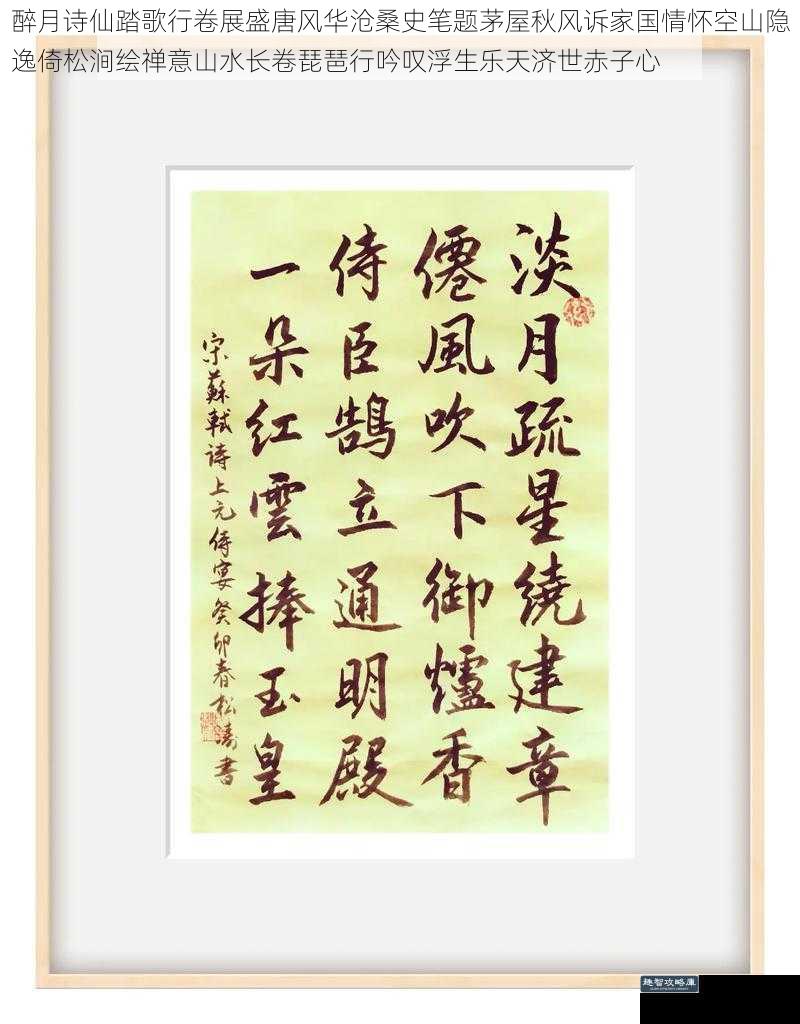 醉月诗仙踏歌行卷展盛唐风华沧桑史笔题茅屋秋风诉家国情怀空山隐
逸倚松涧绘禅意山水长卷琵琶行吟叹浮生乐天济世赤子心
淡月疏星繞建章
僊風吹下御爐香
侍臣鵠立通明殿
一朵紅雲捧玉皇
宋蘇軾诗上元侍宴癸卯春松濤書
趣智攻略庫